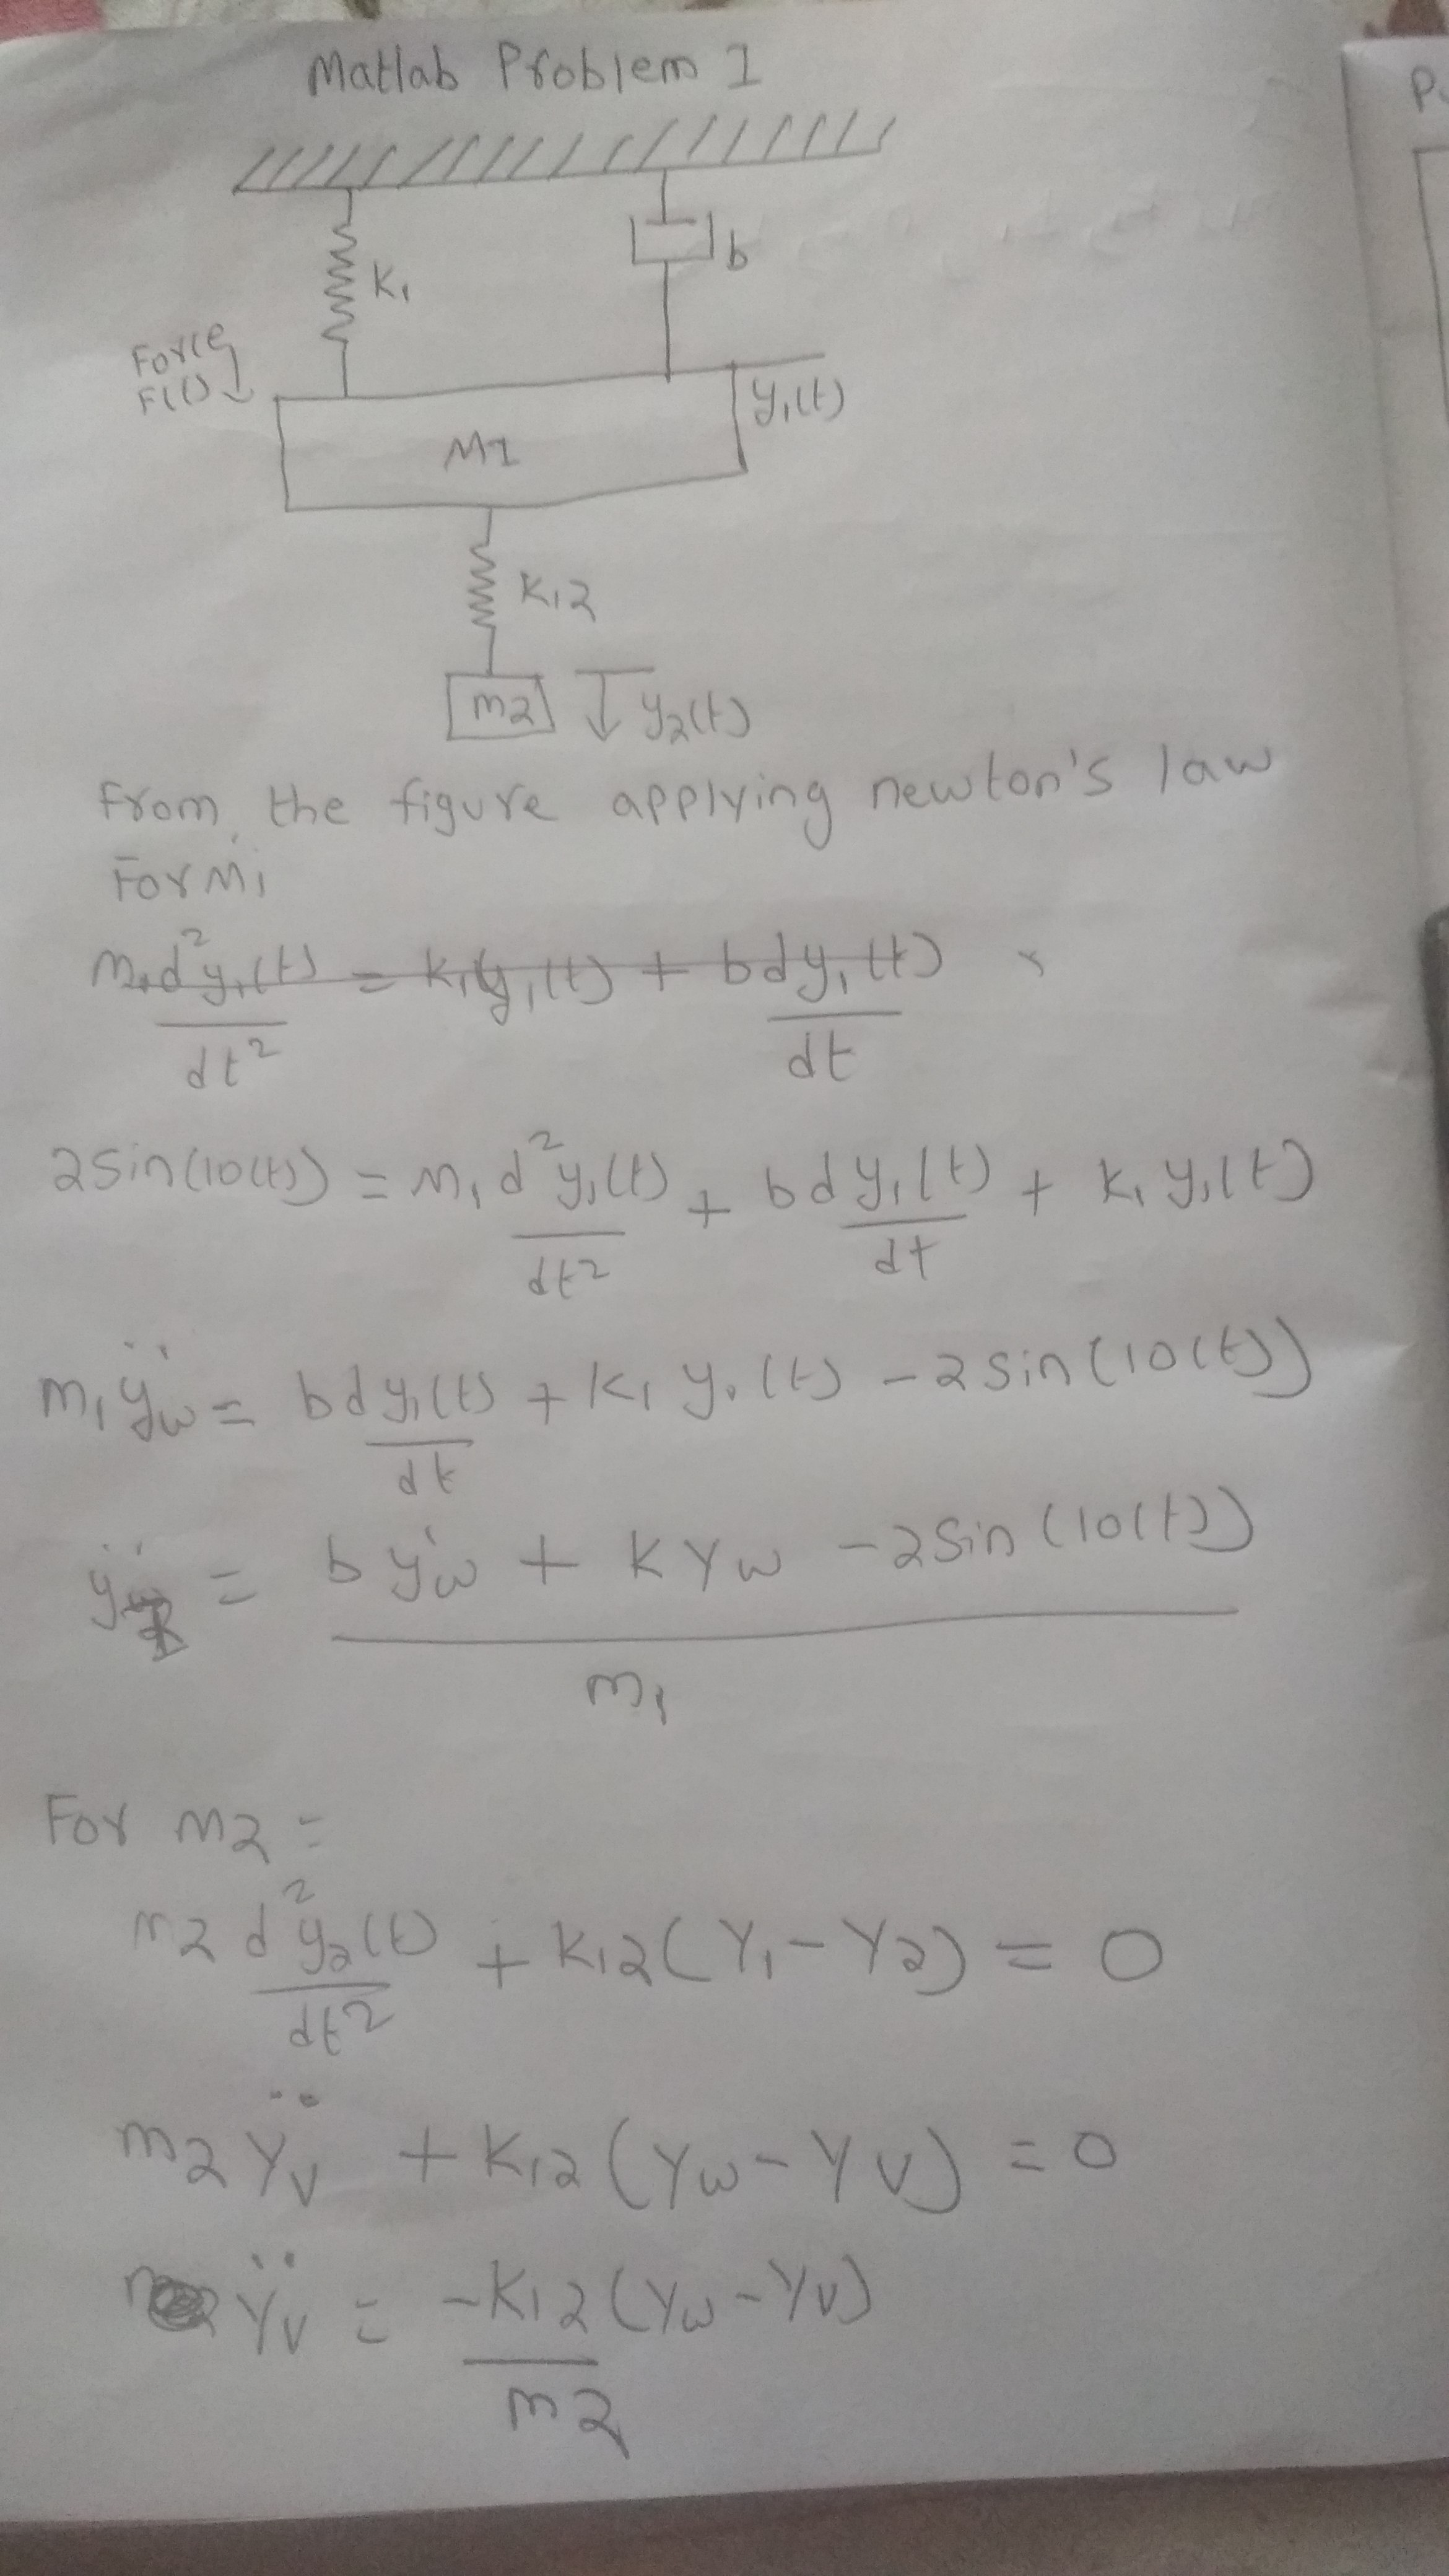 Matlab Problem 1
K1
b
Force
F(t)
y1(t)
M1
K12
m2
y2(t)
From the figure applying newton's law
For M1
m1 d²y1(t)/dt² = k1 y1(t) + b dy1(t)/dt
2 sin(10(t)) = m1 d²y1(t)/dt² + b dy1(t)/dt + k1 y1(t)
m1 ÿw = b dy1(t)/dt + k1 y1(t) - 2 sin(10(t))
ÿ = (b ẏw + K Yw - 2 sin(10(t)))/m1
For m2 =
m2 d²y2(t)/dt² + K12(Y1 - Y2) = 0
m2 Ÿv + K12(Yw - Yv) = 0
Ÿv = -K12(Yw - Yv)/m2
P